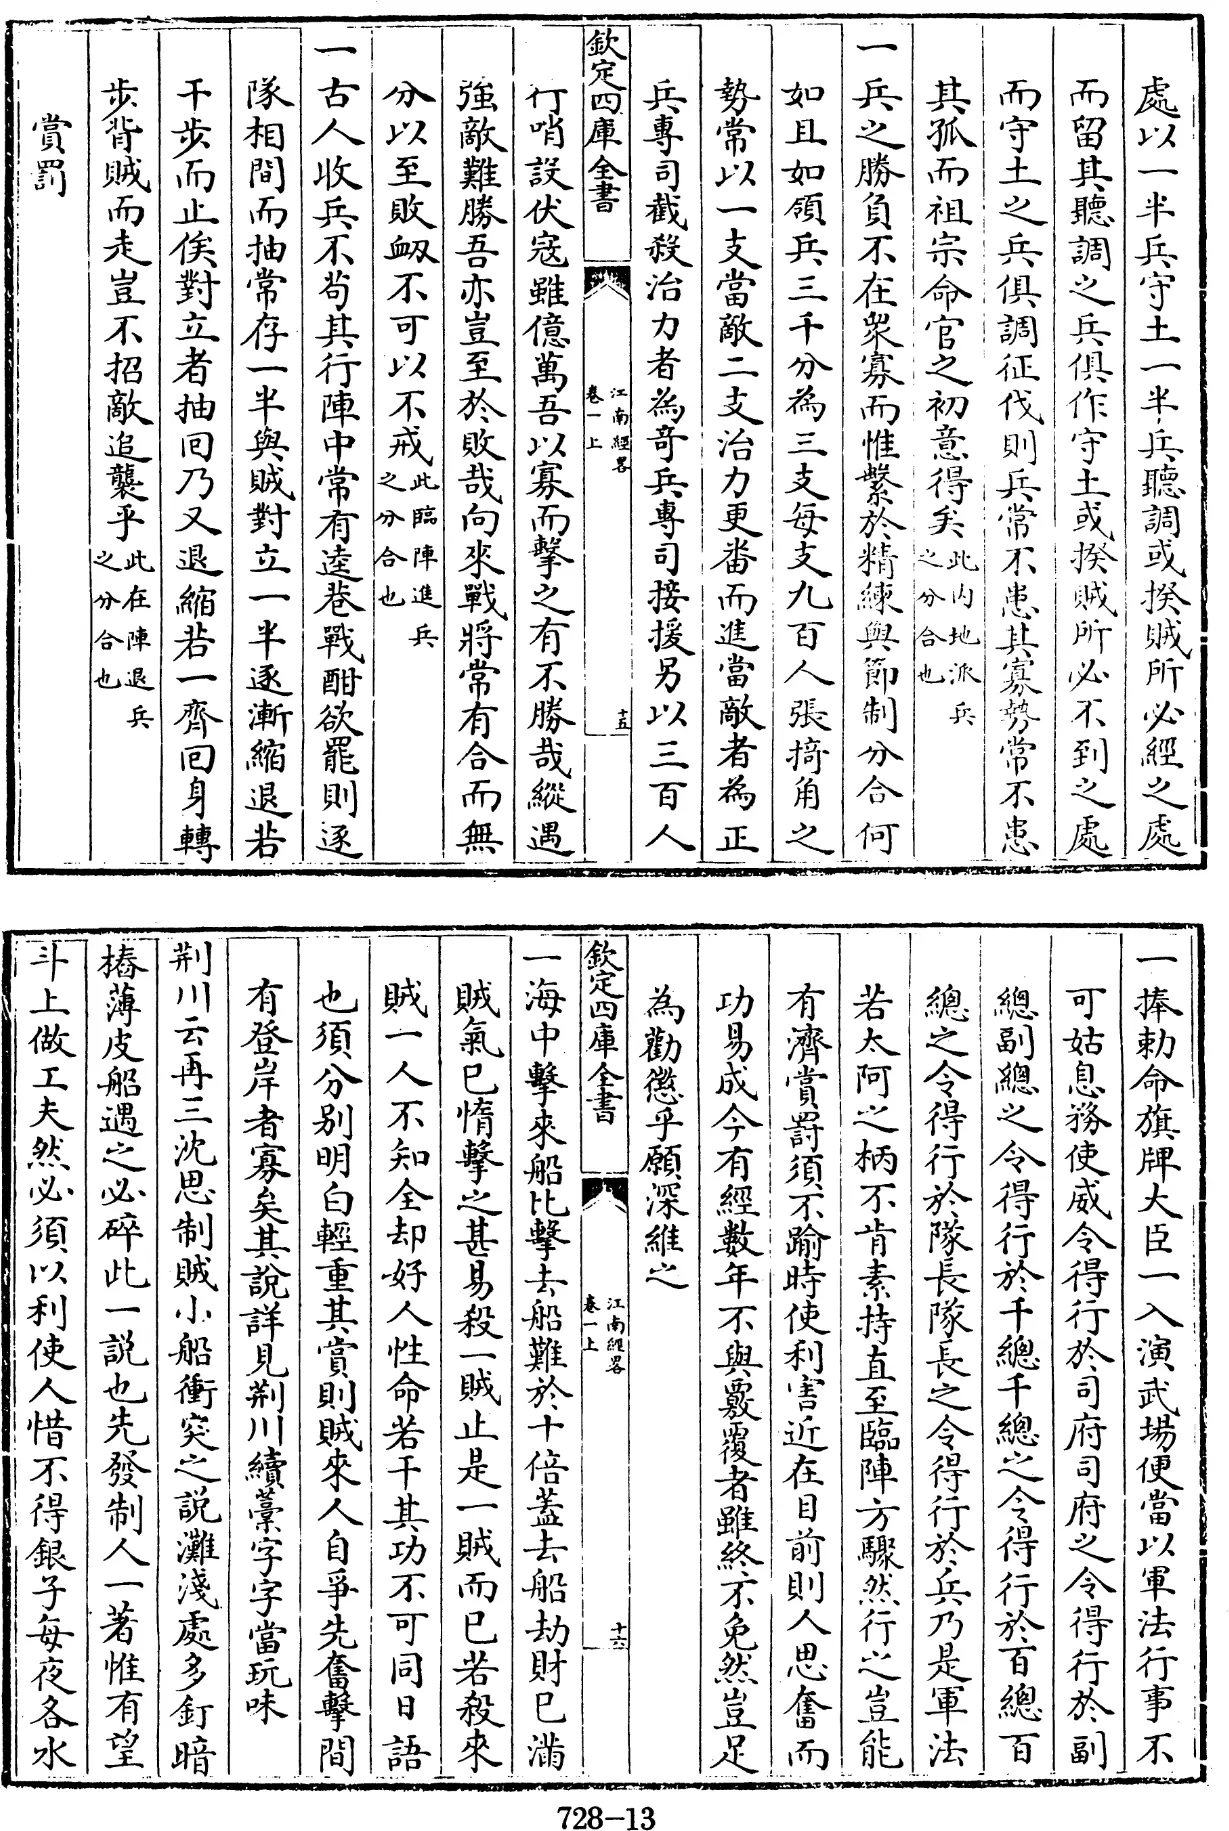 處以一半兵守土一半兵聽調或揆賊所必經之處
而留其聽調之兵俱作守土或揆賊所必不到之處
而守土之兵俱調征伐則兵常不患其寡勢常不患
其孤而祖宗命官之初意得矣此内地派兵之分合也
一兵之勝負不在衆寡而惟繫於精練與節制分合何
如且如領兵三千分為三支每支九百人張掎角之
勢常以一支當敵二支治力更番而進當敵者為正
兵專司截殺治力者為奇兵專司接援另以三百人
欽定四庫全書
江南經畧
卷一上
十五
行哨設伏寇雖億萬吾以寡而擊之有不勝哉縱遇
強敵難勝吾亦豈至於敗哉向來戰將常有合而無
分以至敗衂不可以不戒此臨陣進兵之分合也
一古人收兵不苟其行陣中常有逵巷戰酣欲罷則逐
隊相間而抽常存一半與賊對立一半逐漸縮退若
干步而止俟對立者抽回乃又退縮若一齊回身轉
步背賊而走豈不招敵追襲乎此在陣退兵之分合也
賞罰
一捧勅命旗牌大臣一入演武場便當以軍法行事不
可姑息務使威令得行於司府司府之令得行於副
總副總之令得行於千總千總之令得行於百總百
總之令得行於隊長隊長之令得行於兵乃是軍法
若太阿之柄不肯素持直至臨陣方驟然行之豈能
有濟賞罰須不踰時使利害近在目前則人思奮而
功易成今有經數年不與覈覆者雖終不免然豈足
為勸懲乎願深維之
欽定四庫全書
江南經畧
卷一上
十六
一海中擊來船比擊去船難於十倍蓋去船劫財已滿
賊氣已惰擊之甚易殺一賊止是一賊而已若殺來
賊一人不知全却好人性命若干其功不可同日語
也須分别明白輕重其賞則賊來人自爭先奮擊間
有登岸者寡矣其說詳見荆川續藁字字當玩味
荆川云再三沈思制賊小船衝突之說灘淺處多釘暗
樁薄皮船遇之必碎此一說也先發制人一著惟有望
斗上做工夫然必須以利使人惜不得銀子每夜各水
728-13